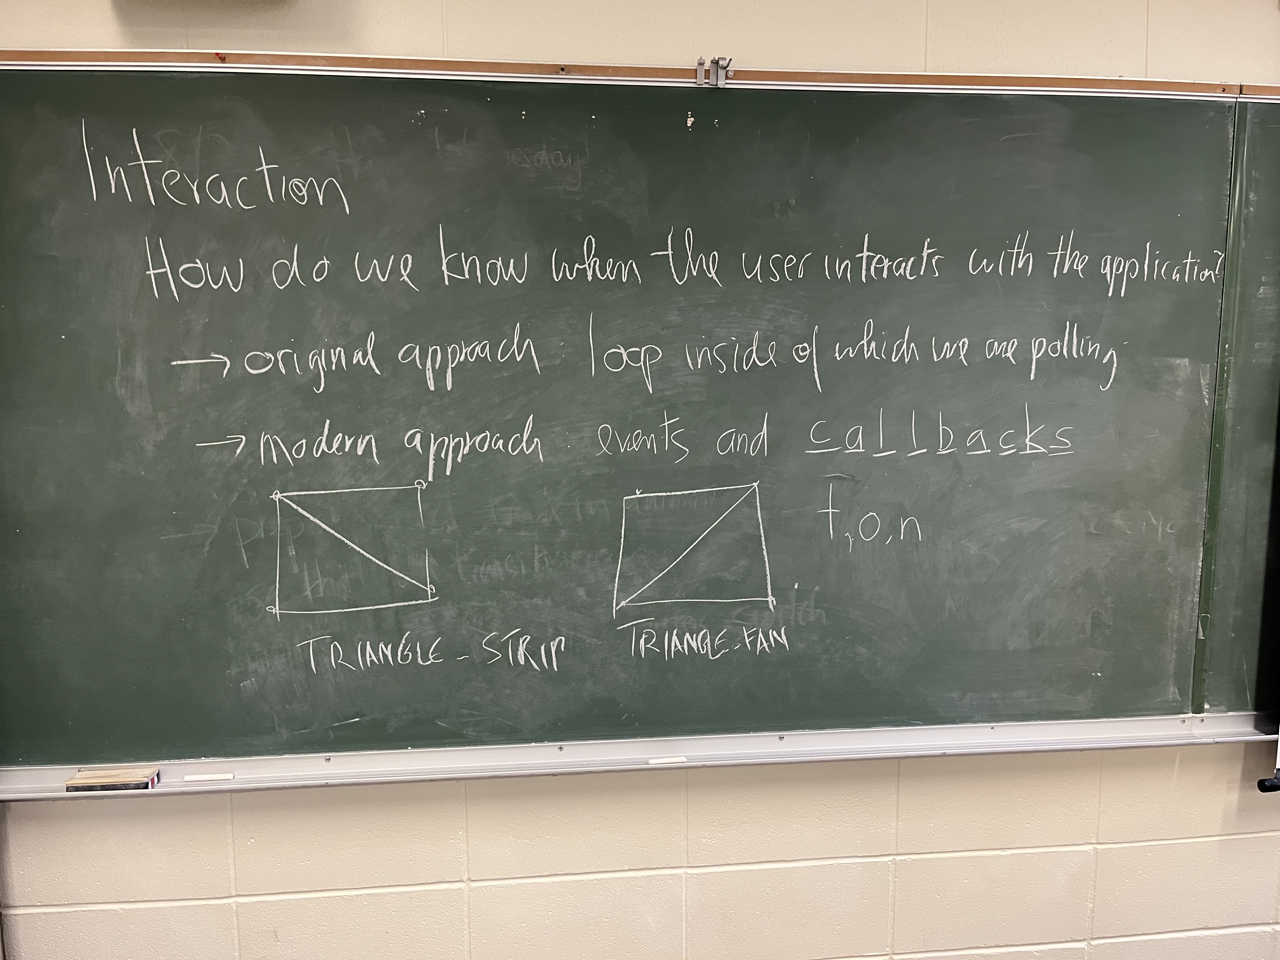 Interaction
How do we know when the user interacts with the application?
→ original approach : loop inside of which we are polling
→ modern approach : events and callbacks
t, o, n
TRIANGLE_STRIP TRIANGLE_FAN